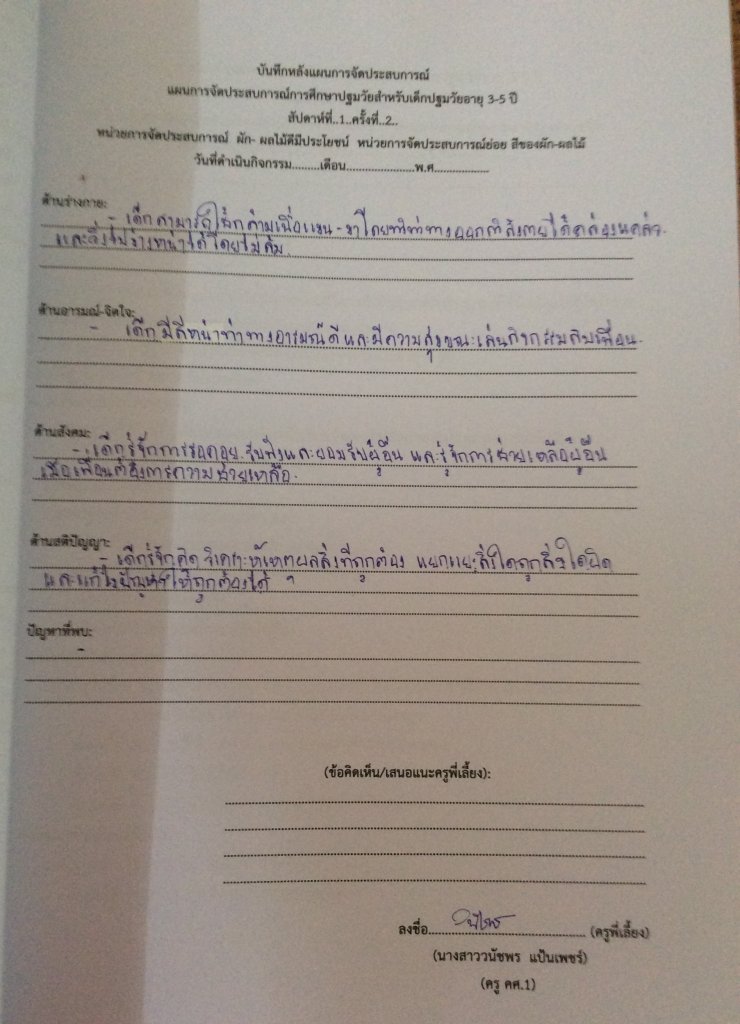 บันทึกหลังแผนการจัดประสบการณ์
แผนการจัดประสบการณ์การศึกษาปฐมวัยสำหรับเด็กปฐมวัยอายุ 3-5 ปี
สัปดาห์ที่..1..ครั้งที่..2..
หน่วยการจัดประสบการณ์ ผัก- ผลไม้ดีมีประโยชน์ หน่วยการจัดประสบการณ์ย่อย สีของผัก-ผลไม้
วันที่ดำเนินกิจกรรม.........เดือน......................พ.ศ..................
ด้านร่างกาย:
- เด็กสามารถใช้กล้ามเนื้อแขน-ขาโดยทำท่าทางออกกำลังกายได้คล่องแคล่ว
และวิ่งไปข้างหน้าได้โดยไม่ล้ม.
ด้านอารมณ์-จิตใจ:
- เด็กมีสีหน้าท่าทางอารมณ์ดีและมีความสุขขณะเล่นกิจกรรมกับเพื่อน.
ด้านสังคม:
- เด็กรู้จักการรอคอย รับฟังและยอมรับผู้อื่น และรู้จักการช่วยเหลือผู้อื่น
เมื่อเพื่อนต้องการความช่วยเหลือ.
ด้านสติปัญญา:
- เด็กรู้จักคิด วิเคราะห์เหตุผลสิ่งที่ถูกต้อง แยกแยะสิ่งใดถูกสิ่งใดผิด
และแก้ไขปัญหาให้ถูกต้องได้ ๆ
ปัญหาที่พบ:
-
(ข้อคิดเห็น/เสนอแนะครูพี่เลี้ยง):
ลงชื่อ.................................... (ครูพี่เลี้ยง)
(นางสาววนัชพร แป้นเพชร์)
(ครู คศ.1)